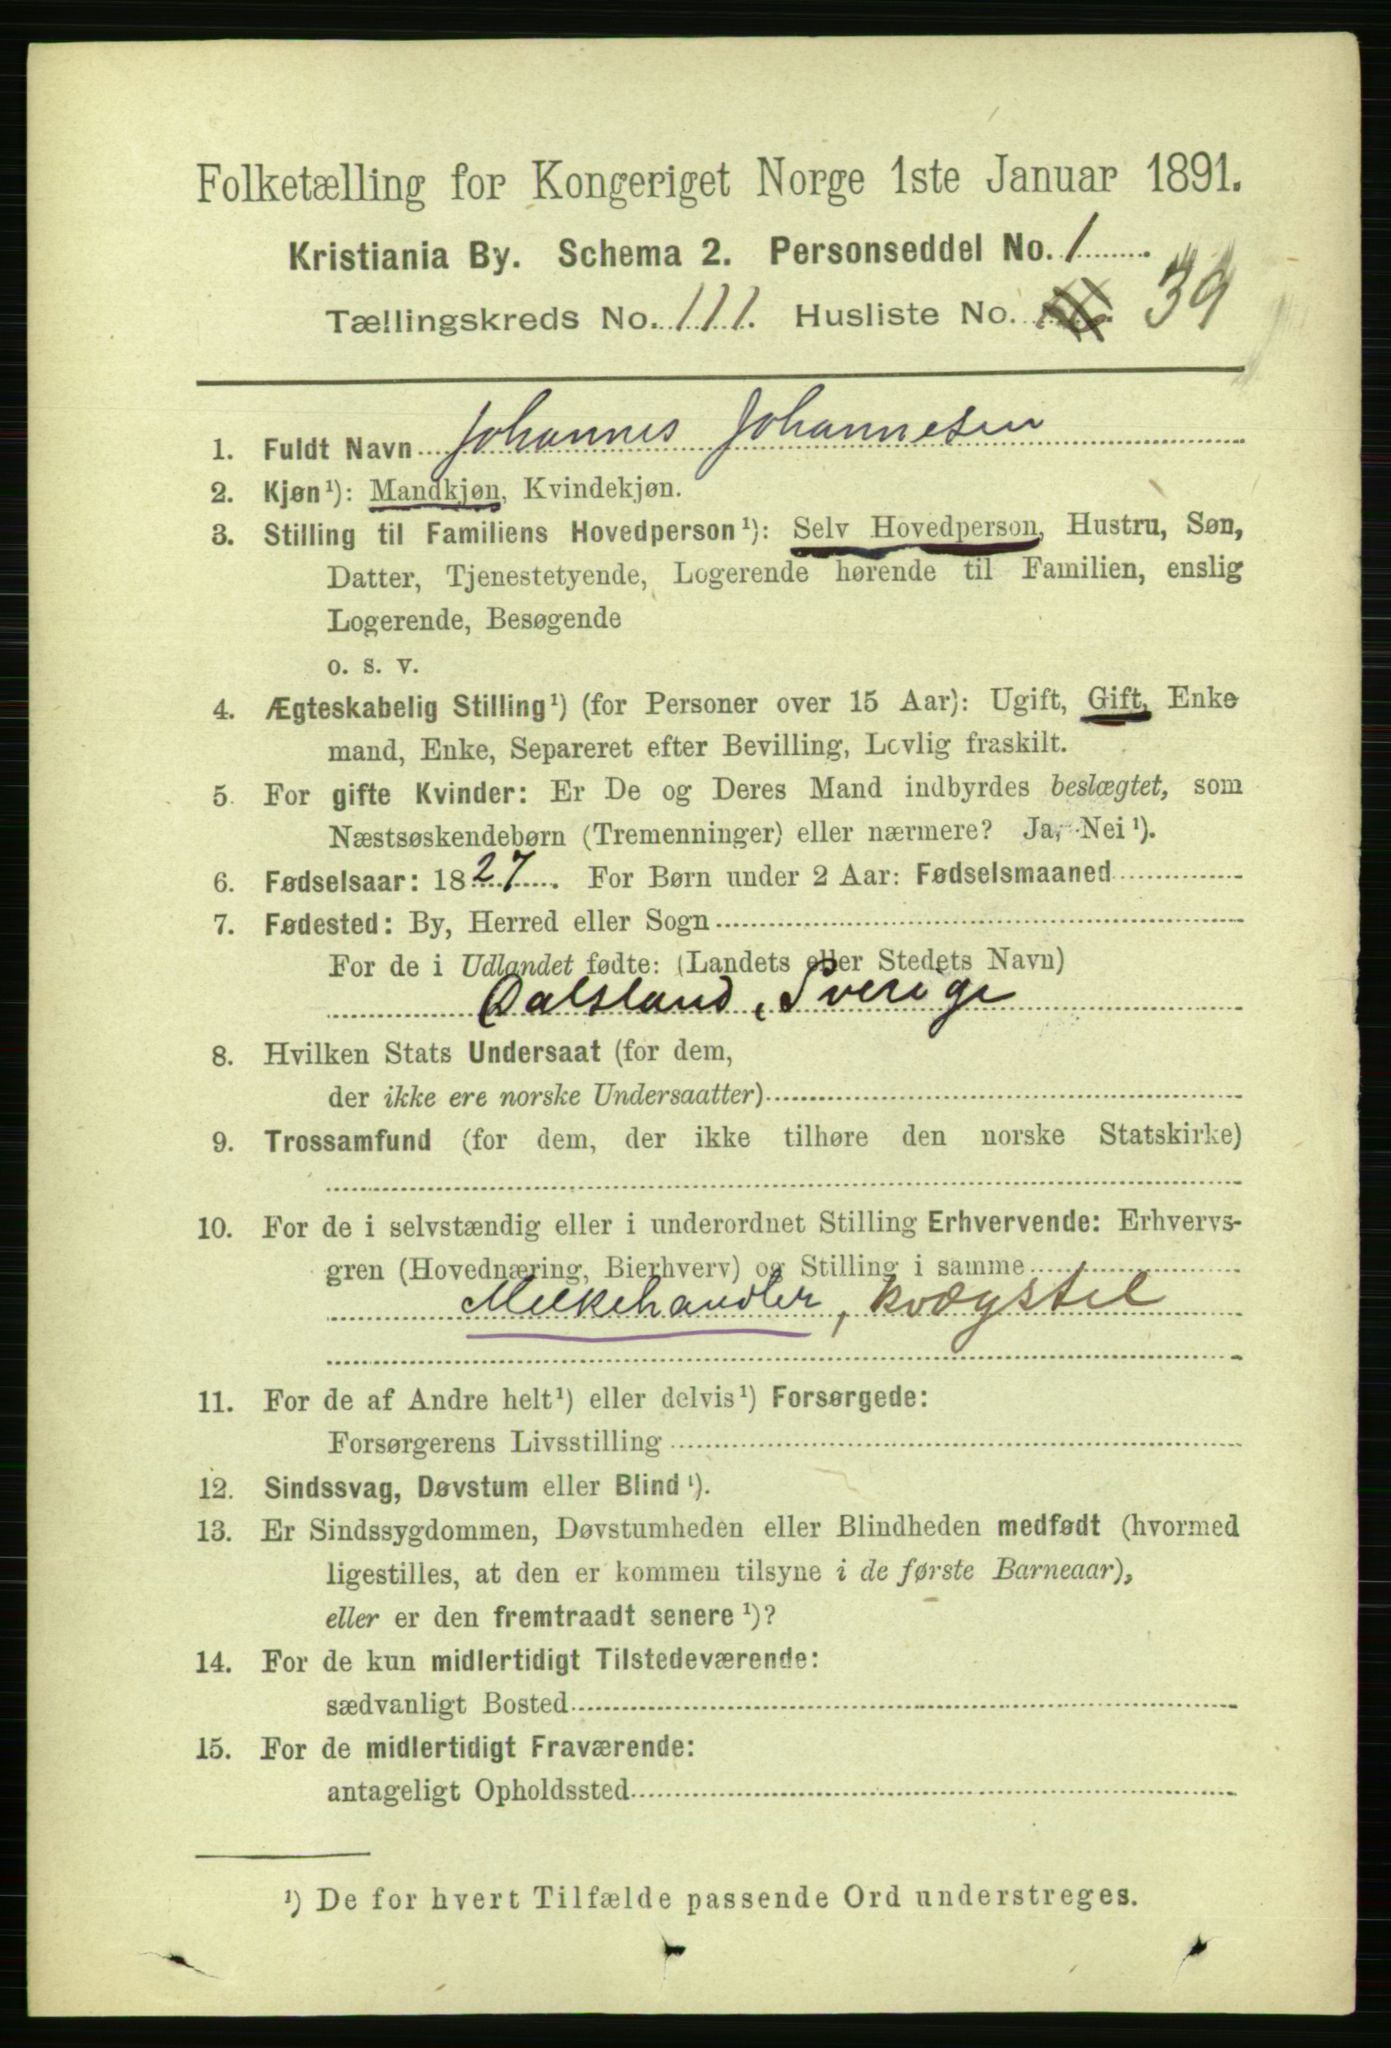 Folketælling for Kongeriget Norge 1ste Januar 1891.
Kristiania By. Schema 2. Personseddel No. 1
Tællingskreds No. 111. Husliste No. 39
1. Fuldt Navn Johannes Johannesen
2. Kjøn¹): Mandkjøn, Kvindekjøn.
3. Stilling til Familiens Hovedperson¹): Selv Hovedperson, Hustru, Søn,
Datter, Tjenestetyende, Logerende hørende til Familien, enslig
Logerende, Besøgende
o. s. v.
4. Ægteskabelig Stilling¹) (for Personer over 15 Aar): Ugift, Gift, Enke
mand, Enke, Separeret efter Bevilling, Lovlig fraskilt.
5. For gifte Kvinder: Er De og Deres Mand indbyrdes beslægtet, som
Næstsøskendebørn (Tremenninger) eller nærmere? Ja, Nei¹).
6. Fødselsaar: 1827. For Børn under 2 Aar: Fødselsmaaned
7. Fødested: By, Herred eller Sogn
For de i Udlandet fødte: (Landets eller Stedets Navn)
Dalsland, Sverige
8. Hvilken Stats Undersaat (for dem,
der ikke ere norske Undersaatter)
9. Trossamfund (for dem, der ikke tilhøre den norske Statskirke)
10. For de i selvstændig eller i underordnet Stilling Erhvervende: Erhvervs-
gren (Hovednæring, Bierhverv) og Stilling i samme
Melkehandler,
11. For de af Andre helt¹) eller delvis¹) Forsørgede:
Forsørgerens Livsstilling
12. Sindssvag, Døvstum eller Blind¹).
13. Er Sindssygdommen, Døvstumheden eller Blindheden medfødt (hvormed
ligestilles, at den er kommen tilsyne i de første Barneaar),
eller er den fremtraadt senere¹)?
14. For de kun midlertidigt Tilstedeværende:
sædvanligt Bosted
15. For de midlertidigt Fraværende:
antageligt Opholdssted
¹) De for hvert Tilfælde passende Ord understreges.